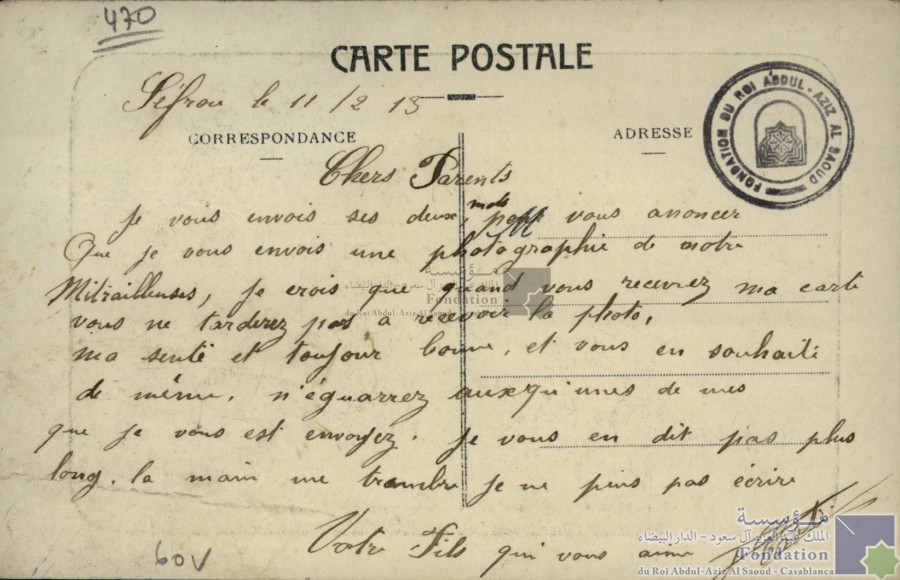 470
CARTE POSTALE
Séfrou le 11/2 13
CORRESPONDANCE
ADRESSE
FONDATION DU ROI ABDUL-AZIZ AL SAOUD
Chers Parents
Je vous envois ses deux mots pour vous anoncer
Que je vous envois une photographie de notre
Mitrailleuses, je crois que quand vous recevrez ma carte
vous ne tarderez pas a recevoir la photo,
ma senté et toujour bonne, et vous en souhaite
de même. n'éguarrez auxqu'unes de mes
que je vous est envoyez. je vous en dit pas plus
long. la main me tramble je ne peus pas écrire
Votre Fils qui vous aime
60V
مؤسسة
الملك عبد العزيز آل سعود - الدار البيضاء
Fondation
du Roi Abdul-Aziz Al Saoud
مؤسسة
الملك عبد العزيز آل سعود - الدار البيضاء
Fondation
du Roi Abdul-Aziz Al Saoud - Casablanca